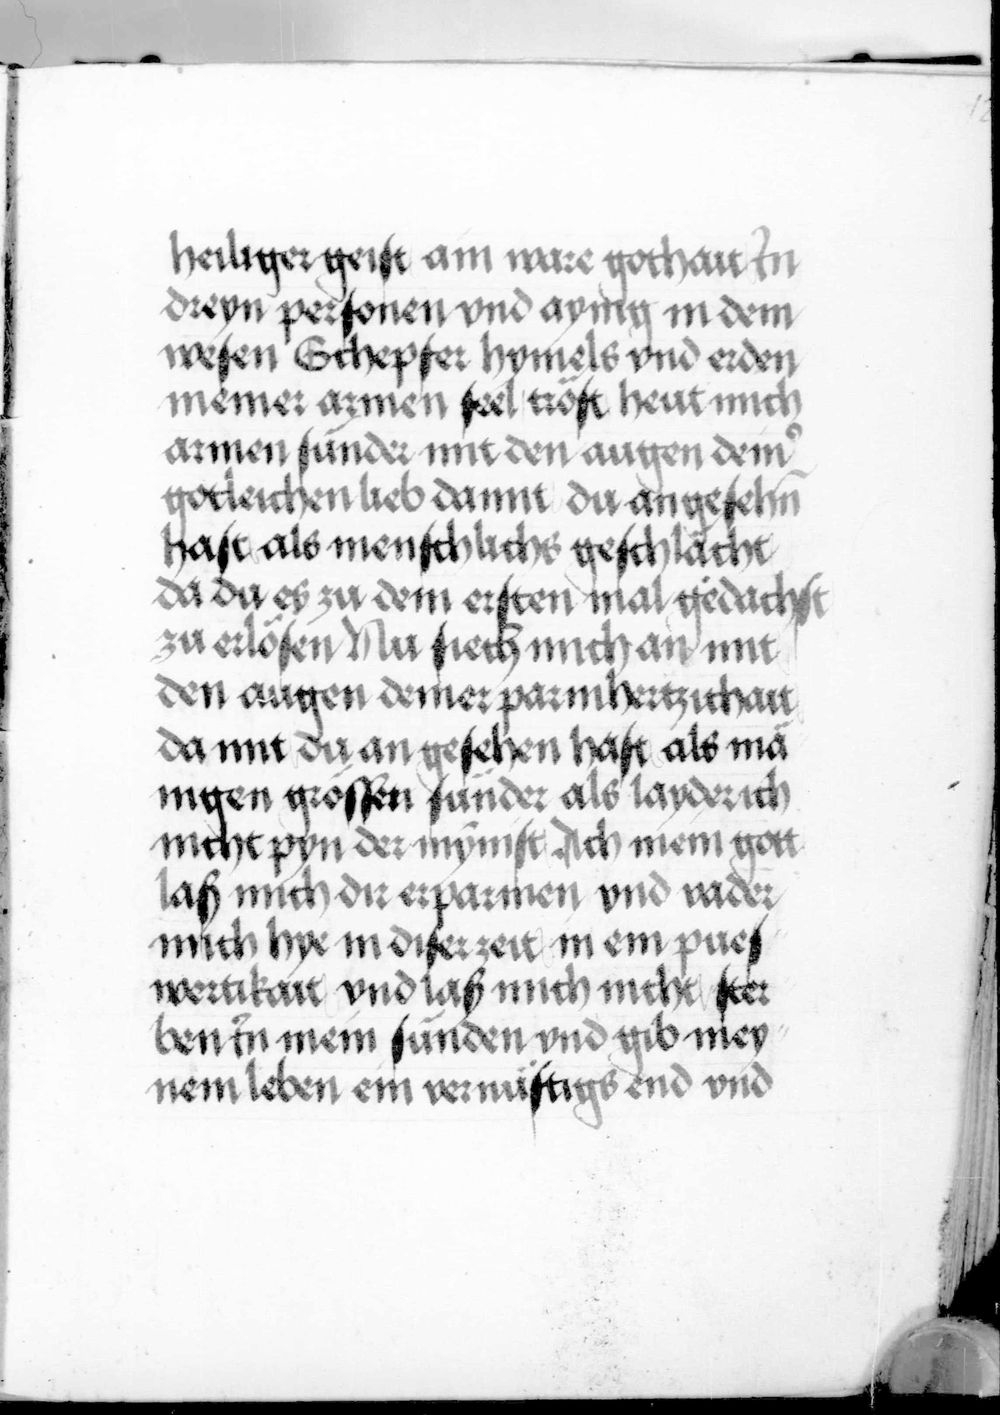 heiliger geist ain ware gothait In
dreyn personen vnd aynig in dem
wesen Schepfer hymels vnd erden
meiner armen seel tröst heut mich
armen sünder mit den augen deinꝰ
gotleichen lieb damit du angesehn̄
hast als menschlichs geschlächt
da du es zu dem ersten mal gedachst
zu erlösen Nu siech mich an mit
den augen deiner parmhertzichait
da mit du an gesehen hast als mä
nigen grössen sünder als layder ich
nicht pyn der mynist Ach mein gott
laß mich dir erparmen vnd vader
mich hye in diser zeit in ein pues⸗
wertikait vnd laß mich nicht ster
ben In mein sünden vnd gib mey⸗
nem leben ein vernüftigs end vnd